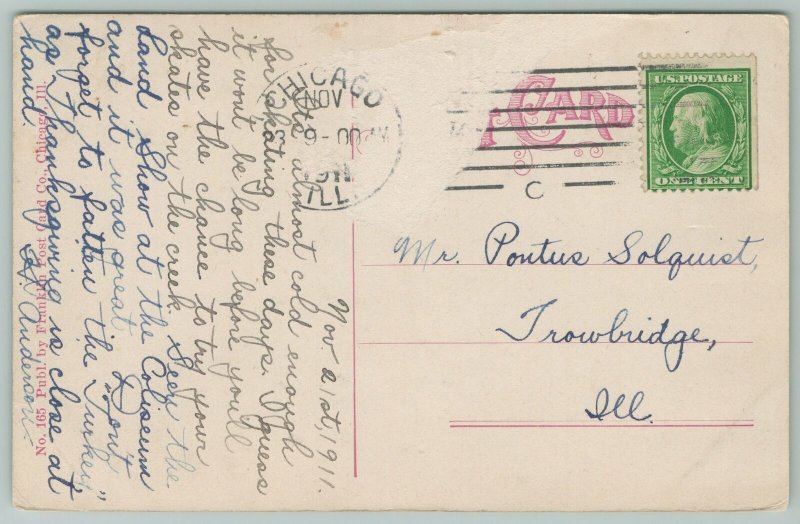 CHICAGO
NOV
9-00 AM
1911
ILL.
C
CARD
U.S. POSTAGE
ONE CENT
Mr. Pontus Solquist,
Trowbridge,
Ill.
Nov 21st, 1911.
Quite almost cold enough
for skating these days. I guess
it wont be long before you'll
have the chance to try your
skates on the creek. Seen the
Land Show at the Coliseum
and it was great. Don't
forget to fatten the "Turkey"
as Thanksgiving is close at
hand.
A. Anderson.
No. 165 Publ. by Franklin Post Card Co., Chicago, Ill.